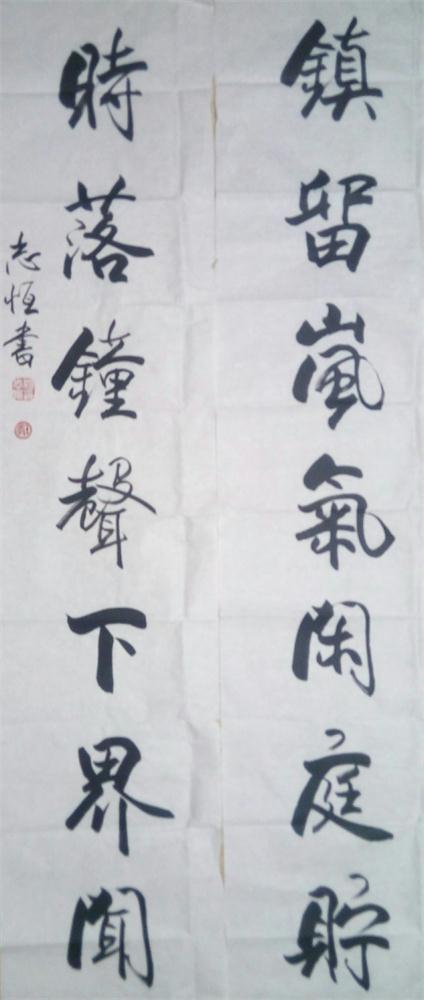 鎮留嵐氣閑庭貯
時落鐘聲下界聞
志恒書